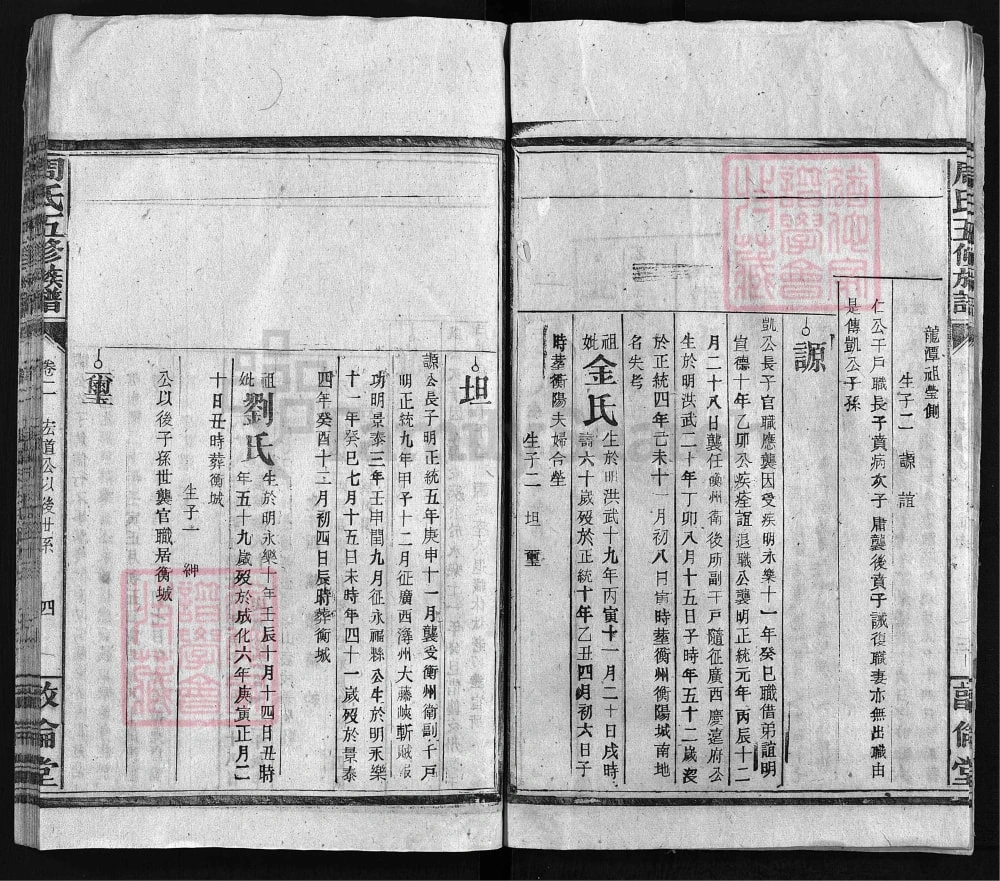 周氏五修族譜
龍潭祖塋側
生子二 謜 誼
仁公千戶職長子賁病次子庸襲後賁子誠復職妻亦無出職由
是傳凱公子孫
謜
凱公長子官職應襲因受疾明永樂十一年癸巳職借弟誼明
宣德十年乙卯公疾痊誼退職公襲明正統元年丙辰十二
月二十八日襲任衡州衛後所副千戶隨征廣西慶遠府公
生於明洪武二十年丁卯八月十五日子時年五十二歲沒
於正統四年己未十一月初八日寅時塟衡州衡陽城南地
名失考
祖妣金氏生於明洪武十九年丙寅十一月二十日戌時
壽六十歲歿於正統十年乙丑四月初六日子
時塟衡陽夫婦合塋
生子二 坦 璽
坦
謜公長子明正統五年庚申十一月襲受衡州衛副千戶
明正統九年甲子十二月征廣西潯州大藤峽斬賊報
功明景泰三年壬申閏九月征永福縣公生於明永樂
十一年癸巳七月十五日未時年四十一歲歿於景泰
四年癸酉十二月初四日辰時葬衡城
祖妣劉氏生於明永樂十年壬辰十月十四日丑時
年五十九歲歿於成化六年庚寅正月二
十日丑時葬衡城
生子一 紳
公以後子孫世襲官職居衡城
璽
周氏五修族譜
卷二 宏道公以後世系
四
敦倫堂